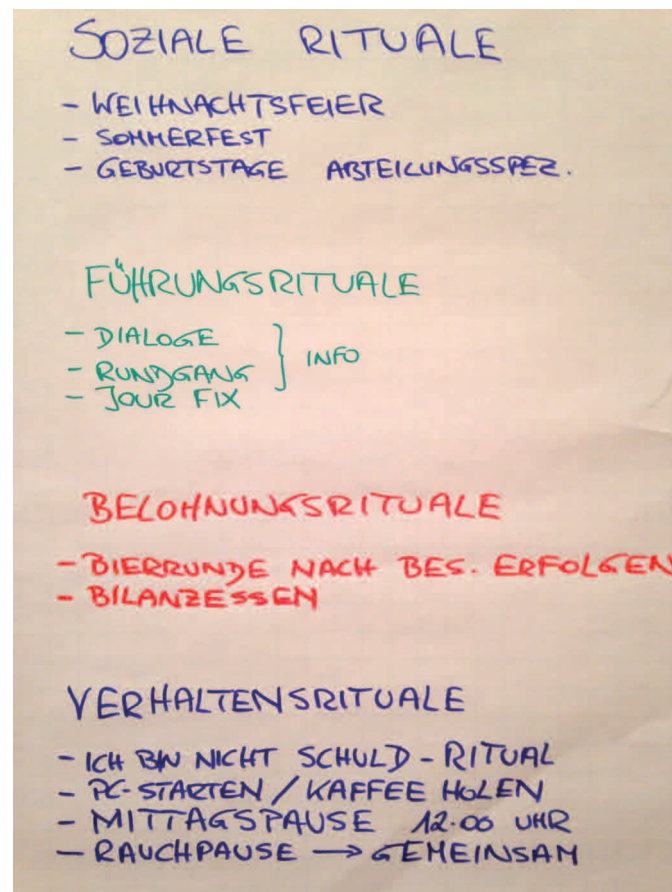 SOZIALE RITUALE
- WEIHNACHTSFEIER
- SOMMERFEST
- GEBURTSTAGE ABTEILUNGSSPEZ.
FÜHRUNGSRITUALE
- DIALOGE
- RUNDGANG } INFO
- JOUR FIX
BELOHNUNGSRITUALE
- BIERRUNDE NACH BES. ERFOLGEN
- BILANZESSEN
VERHALTENSRITUALE
- ICH BIN NICHT SCHULD - RITUAL
- PC-STARTEN / KAFFEE HOLEN
- MITTAGSPAUSE 12.00 UHR
- RAUCHPAUSE → GEMEINSAM